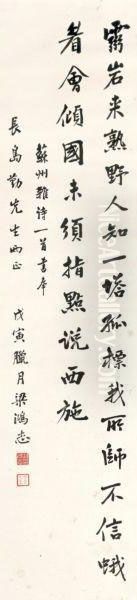 靈岩来熟野人知一塔孤標我所師不信蛾
眉會傾國未須指點说西施
蘇州雜詩一首書奉
長島勤先生正
戊寅臘月梁鴻志